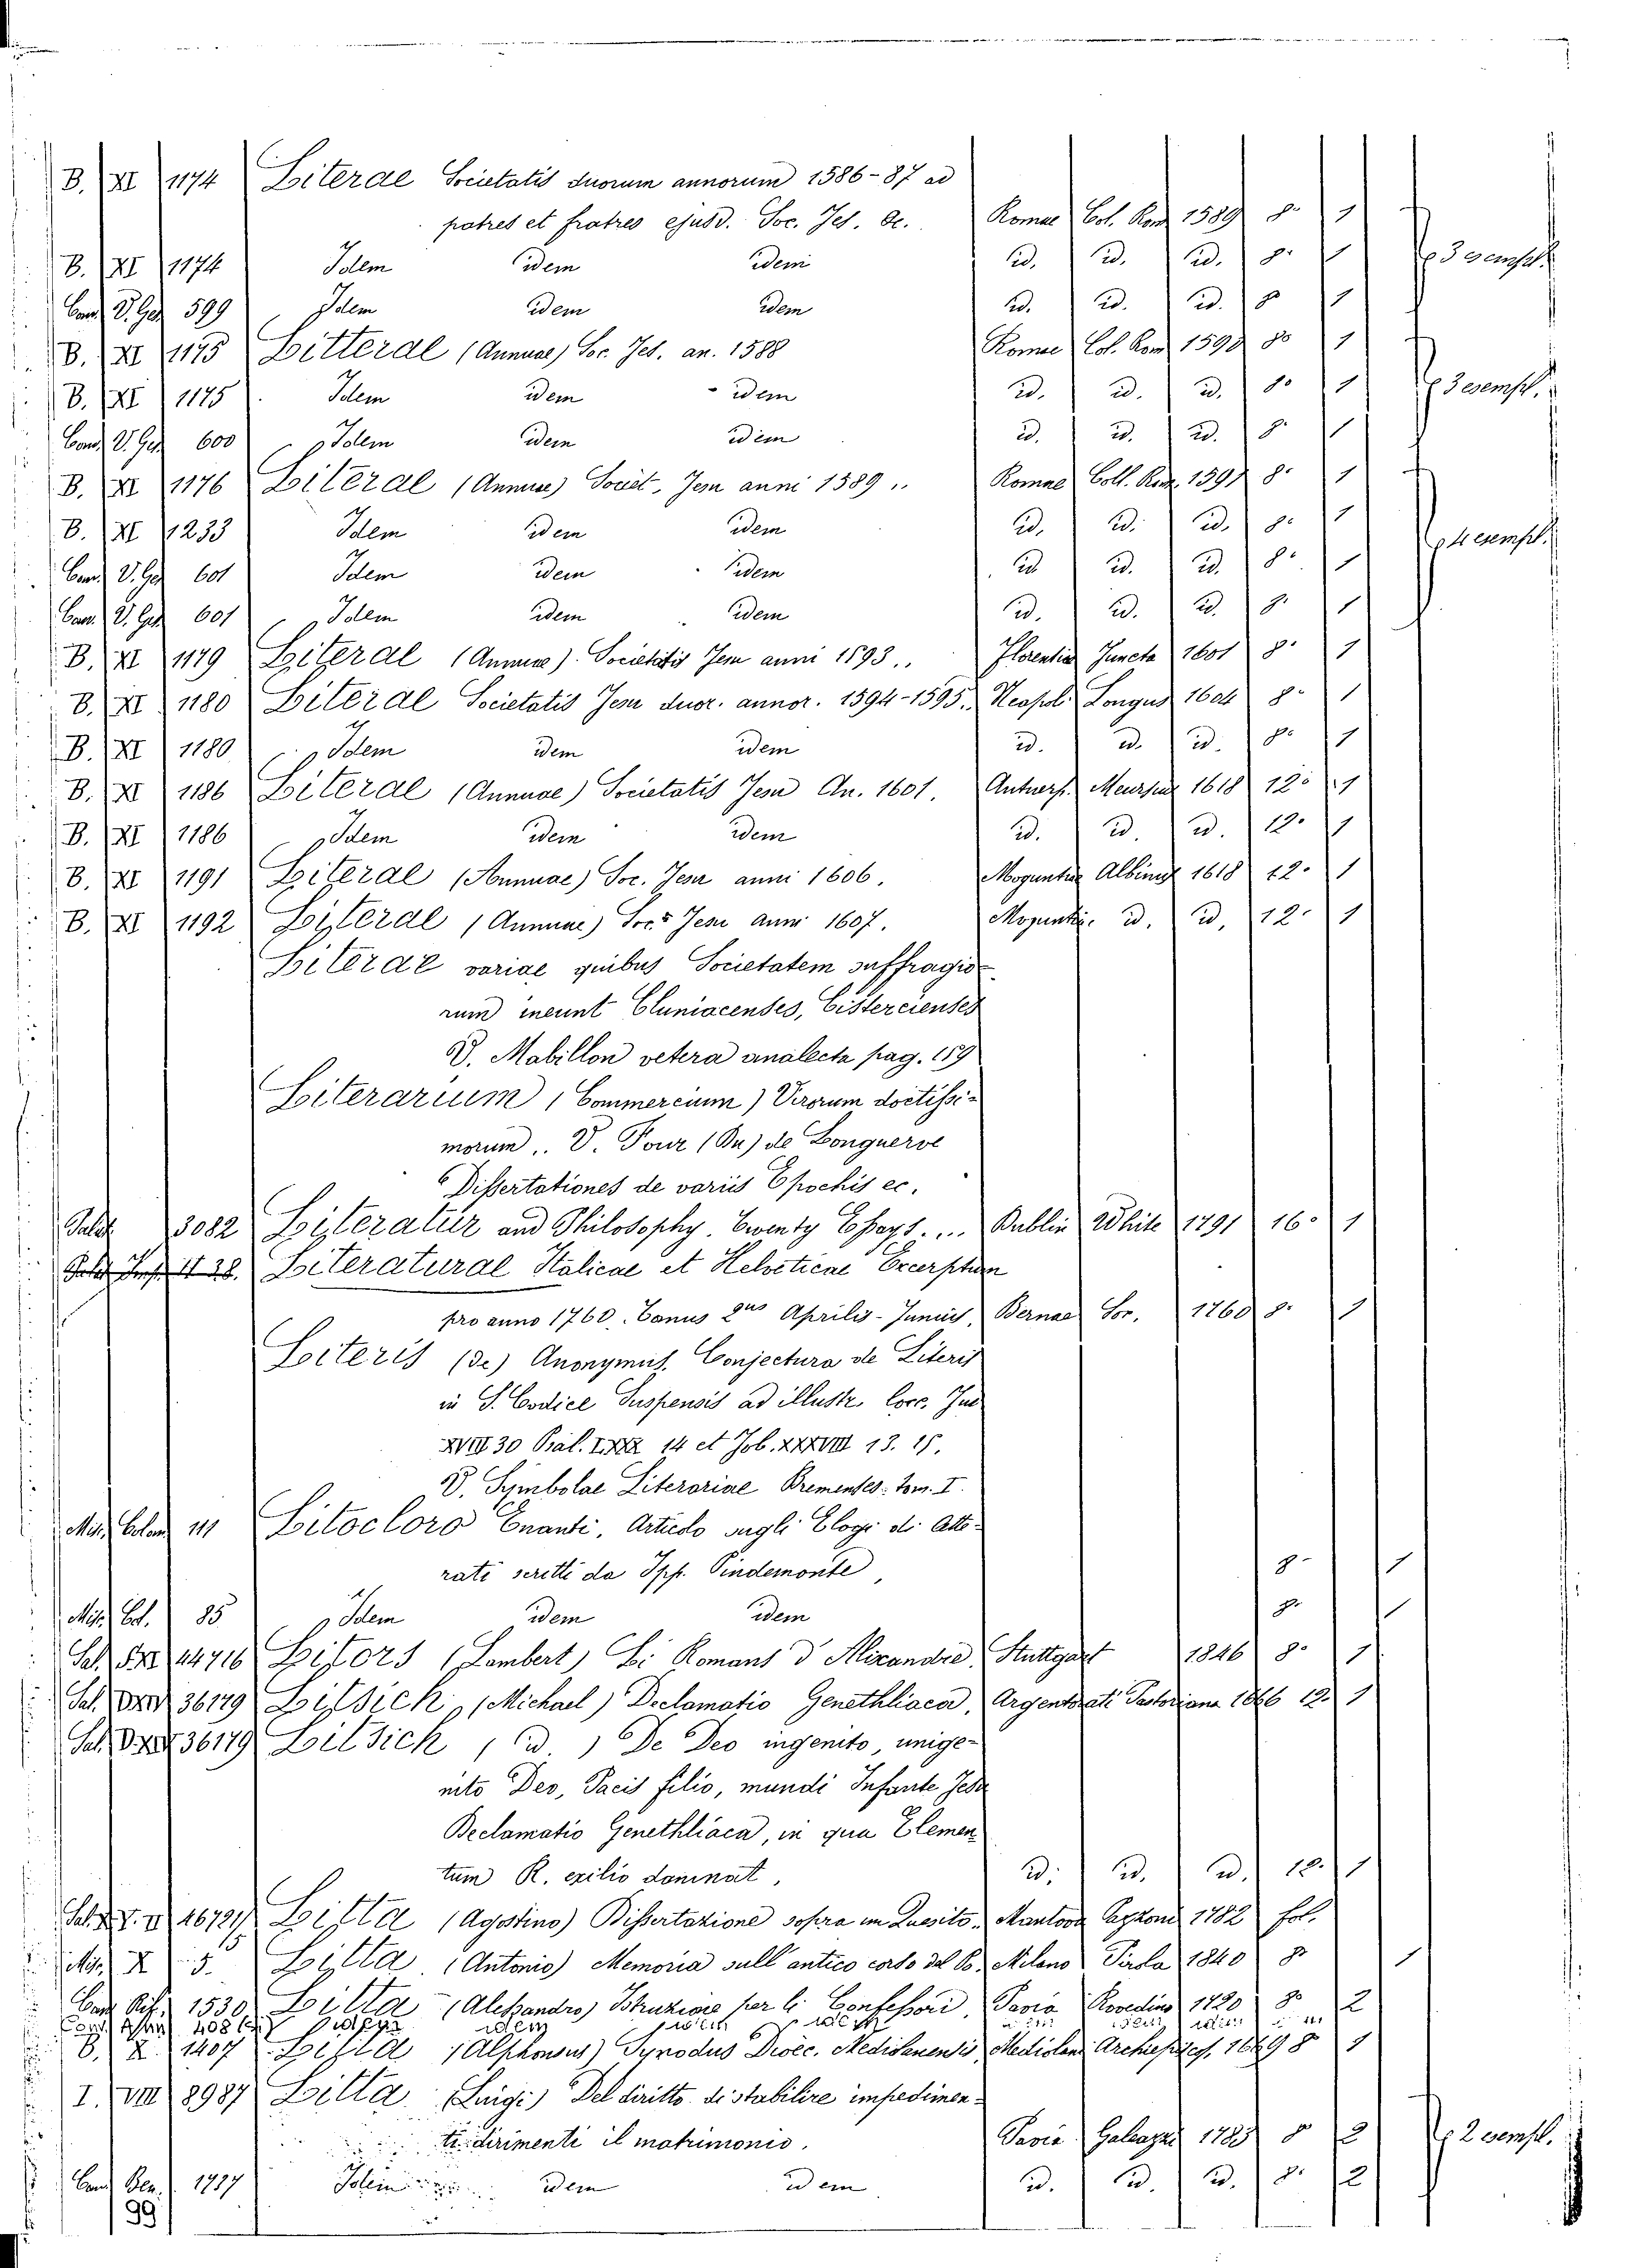 B. XI 1174 Literae Societatis duorum annorum 1586-87 ad
patres et fratres ejusd. Soc. Jes. &c. Romae Col. Rom. 1589 8° 1
B. XI 1174 Idem idem idem id. id. id. 8° 1 3 esempl.
Cand. V. Ges. 599 Idem idem idem id. id. id. 8° 1
B. XI 1175 Litterae (Annuae) Soc. Jes. an. 1588 Romae Col. Rom. 1590 8° 1
B. XI 1175 Idem idem idem id. id. id. 8° 1 3 esempl.
Cand. V. Ges. 600 Idem idem idem id. id. id. 8° 1
B. XI 1176 Literae (Annuae) Societ. Jesu anni 1589.. Romae Coll. Rom. 1591 8° 1
B. XI 1233 Idem idem idem id. id. id. 8° 1 4 esempl.
Cand. V. Ges. 601 Idem idem idem id. id. id. 8° 1
Cand. V. Ges. 601 Idem idem idem id. id. id. 8° 1
B. XI 1179 Literae (Annuae) Societatis Jesu anni 1593.. Florentiae Juncta 1601 8° 1
B. XI 1180 Literae Societatis Jesu duor. annor. 1594-1595. Neapol. Longus 1604 8° 1
B. XI 1180 Idem idem idem id. id. id. 8° 1
B. XI 1186 Literae (Annuae) Societatis Jesu An. 1601. Antuerp. Meursius 1618 12° 1
B. XI 1186 Idem idem idem id. id. id. 12° 1
B. XI 1191 Literae (Annuae) Soc. Jesu anni 1606. Moguntiae Albinus 1618 12° 1
B. XI 1192 Literae (Annuae) Soc. Jesu anni 1607. Moguntiae id. id. 12° 1
Literae variae quibus Societatem suffragio-
rum ineunt Cluniacenses, Cistercienses
V. Mabillon vetera analecta pag. 159
Literarium (Commercium) Virorum doctissi-
morum.. V. Four (Du) de Longuerve
Dissertationes de variis Epochis ec.
3082 Literatur and Philosophy. Twenty Essays.... Dublin White 1791 16° 1
38. Literaturae Italicae et Helveticae Excerptum
pro anno 1760. Tomus 2us Aprilis-Junius, Bernae Soc. 1760 8° 1
Literis (De) Anonymus. Conjectura de Literis
in S. Codice Suspensis ad illustr. loca. Jud
XVIII 30 Psal. LXXX 14 et Job. XXXVIII 13. 15.
V. Symbolae Literariae Bremenses. tom. I.
111 Litocloro Enanti, Articolo sugli Elogi di lette-
rati scritti da Ipp. Pindemonte 8° 1
Misc. Col. 85 Idem idem idem 8° 1
44716 Litors (Lambert) Li Romans d'Alixandre Stuttgart 1846 8° 1
36179 Litsick, (Michael) Declamatio Genethliaca, Argentorati Pastoriana 1666 12° 1
36179 Litsick (id.) De Deo ingenito, unige-
nito Deo, Pacis filio, mundi Infante Jesu
Declamatio Genethliaca, in qua Elemen
tum R. exilio damnat, id. id. id. 12° 1
46721 Litta (Agostino) Dissertazione sopra un Quesito. Mantova Pazzoni 1782 fol.
Misc. X 5. Litta (Antonio) Memoria sull'antico corso del Po. Milano Pirola 1840 8° 1
1530 Litta (Alessandro) Istruzione per li Confessori, Pavia Rovedino 1720 8° 2
idem
B. X 1407 Litta (Alphonsus) Synodus Dioec. Mediolanensis Mediolani Archiepisc. 1669 8 1
I. VIII 8987 Litta (Luigi) Del diritto di stabilire impedimen-
ti dirimenti il matrimonio. Pavia Galeazzi 1783 8 2 2 esempl.
Cand. Ben. 1787 Idem idem idem id. id. id. 8° 2
99